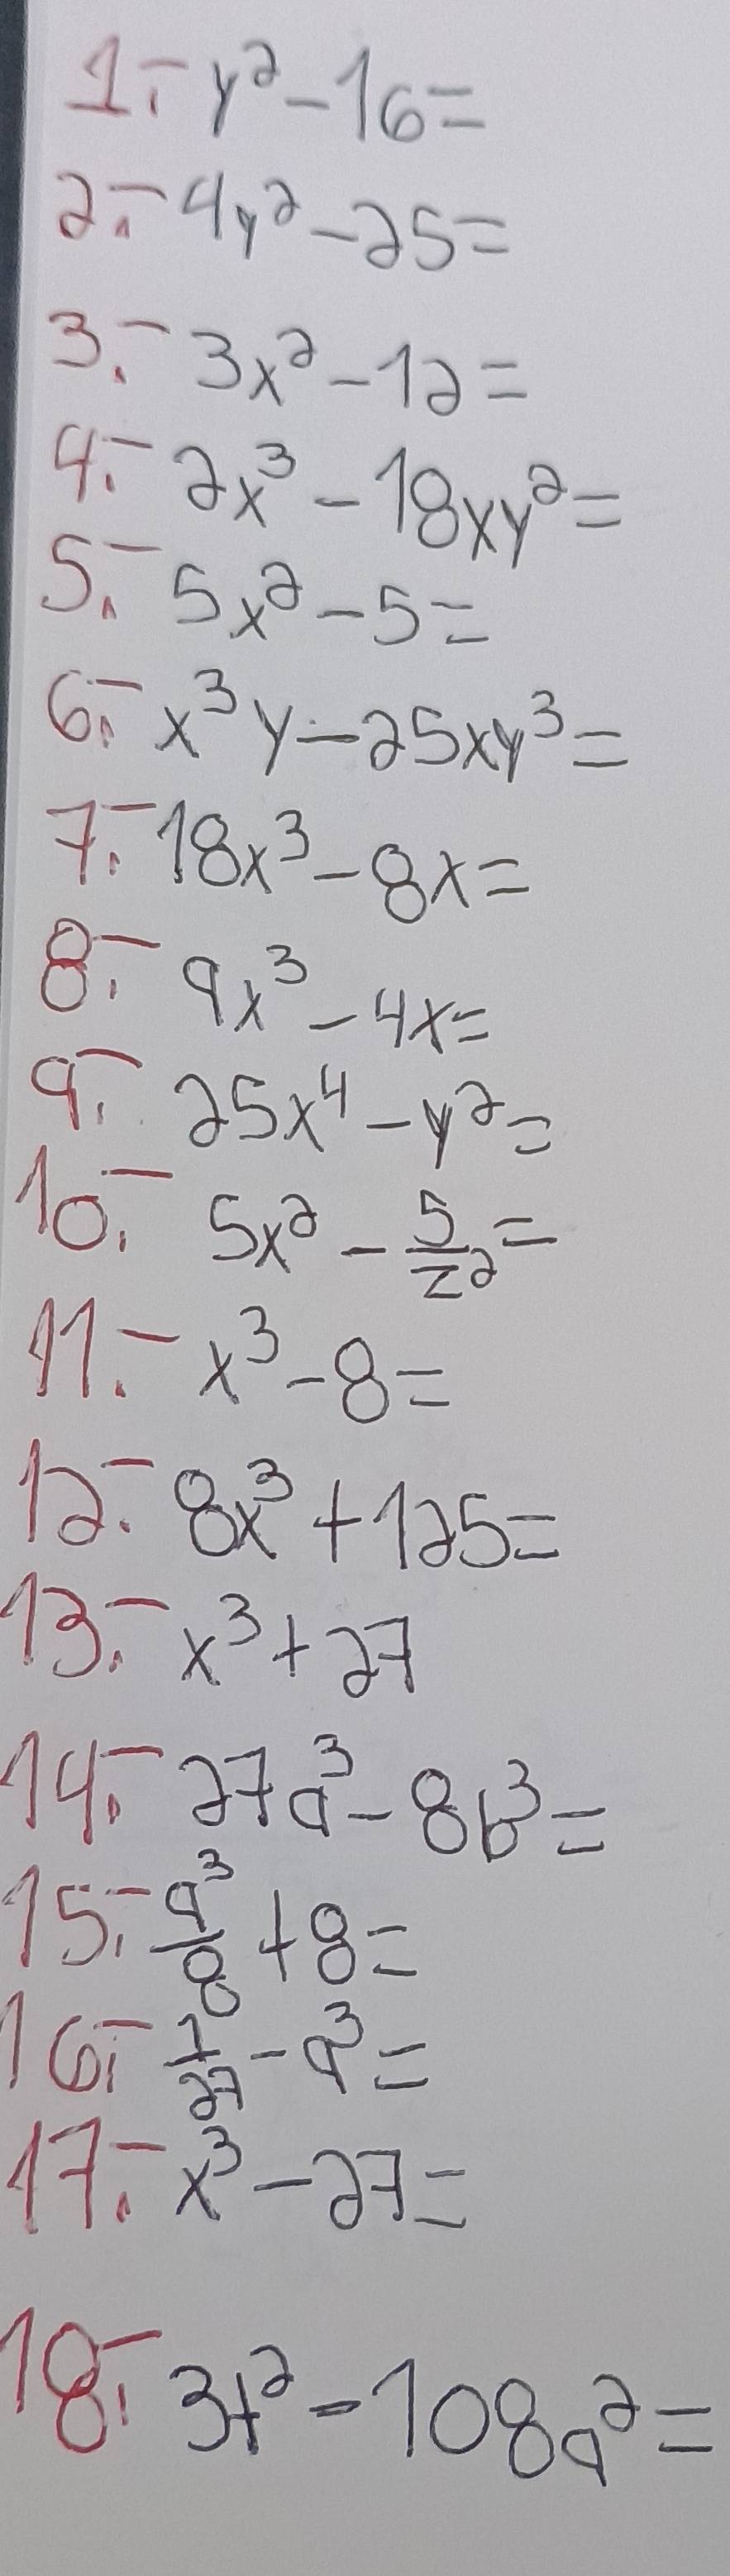 1.- y² - 16 =
2.- 4y² - 25 =
3.- 3x² - 12 =
4.- 2x³ - 18xy² =
5.- 5x² - 5 =
6.- x³y - 25xy³ =
7.- 18x³ - 8x =
8.- 9x³ - 4x =
9.- 25x⁴ - y² =
10.- 5x² - 5/z² =
11.- x³ - 8 =
12.- 8x³ + 125 =
13.- x³ + 27
14.- 27a³ - 8b³ =
15.- a³/8 + 8 =
16.- 1/27 - a³ =
17.- x³ - 27 =
18.- 3t² - 108a² =